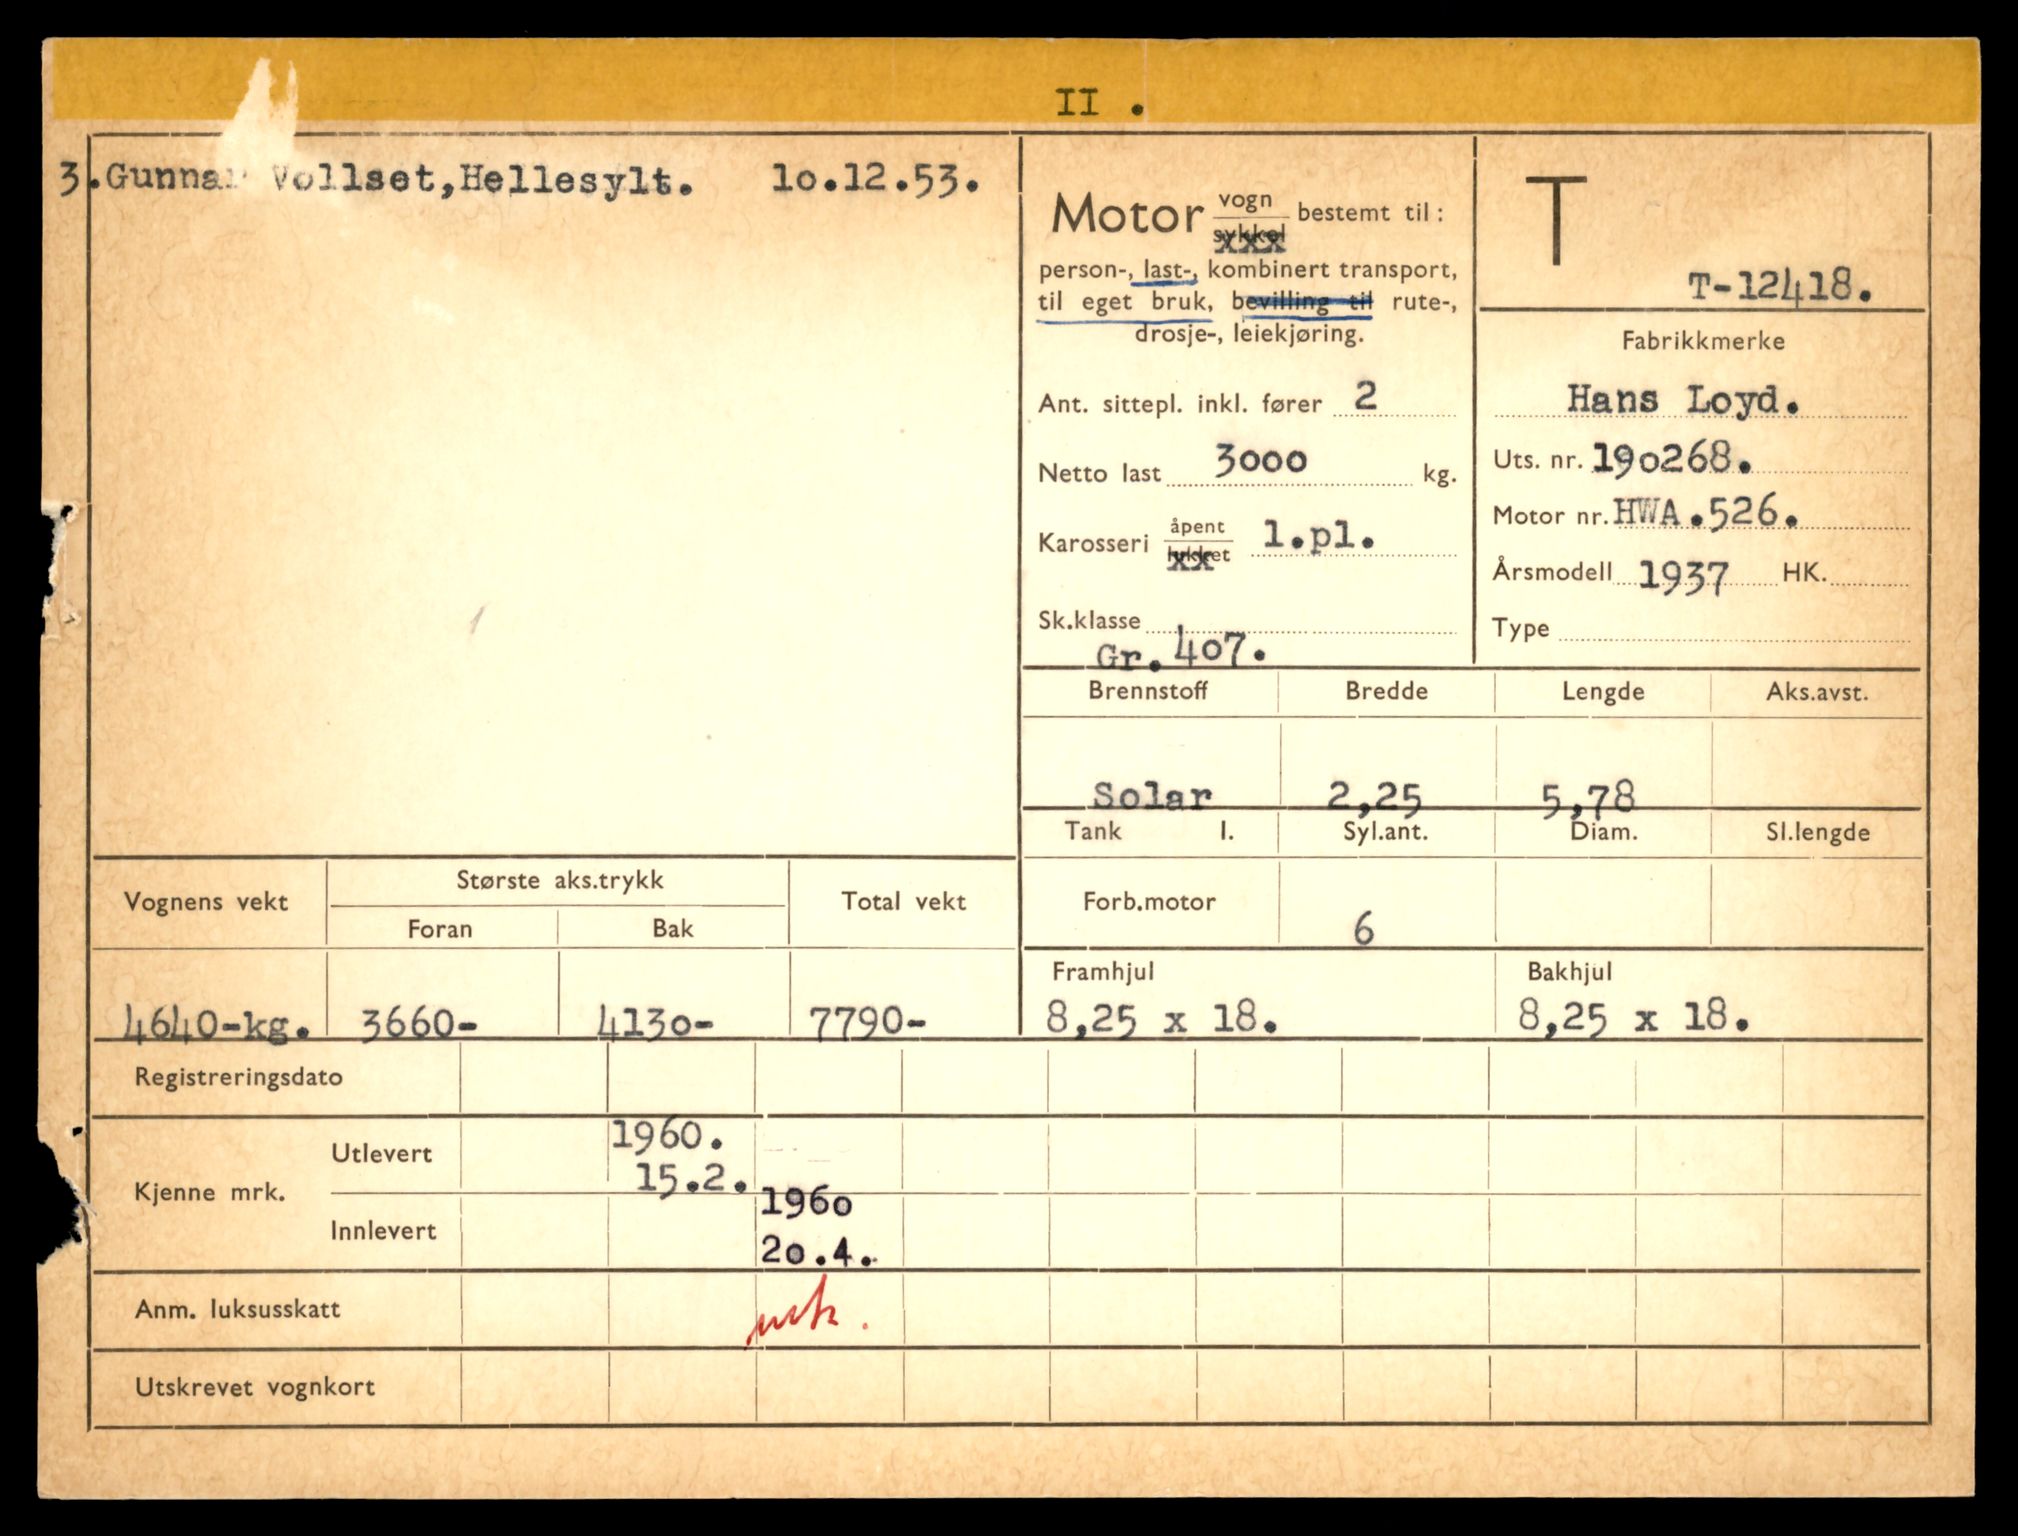 II .
3.Gunnar Vollset,Hellesylt. 10.12.53.
Motor vogn bestemt til:
sykkel
person-, last-, kombinert transport,
til eget bruk, bevilling til rute-,
drosje-, leiekjøring.
Ant. sittepl. inkl. fører 2
Netto last 3000 kg.
Karosseri åpent l.pl.
lukket
Sk.klasse
Gr.407.
T
T-12418.
Fabrikkmerke
Hans Loyd.
Uts. nr. 190268.
Motor nr. HWA.526.
Årsmodell 1937 HK.
Type
Brennstoff Bredde Lengde Aks.avst.
Solar 2,25 5,78
Tank l. Syl.ant. Diam. Sl.lengde
Forb.motor 6
Framhjul Bakhjul
8,25 x 18. 8,25 x 18.
Vognens vekt Største aks.trykk Total vekt
Foran Bak
4640-kg. 3660- 4130- 7790-
Registreringsdato
Kjenne mrk. Utlevert 1960.
15.2.
Innlevert 1960
20.4.
Anm. luksusskatt
Utskrevet vognkort